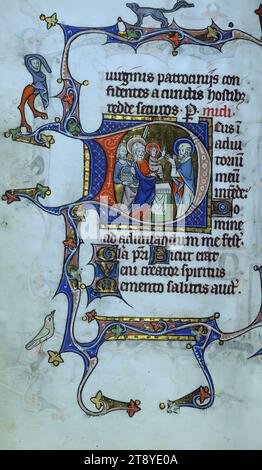 uirginis patrocinijs con
fidentes a cunctis hostib;
redde securos. P. midi
Deus ī
adiu
toriū
meū
intēde
Do
mine
ad adiuuandum me fest.
Gl̄a pr̄i Sicut erat
Veni creator spiritus
Memento salutis auct.
alamy - 2T8YE0A